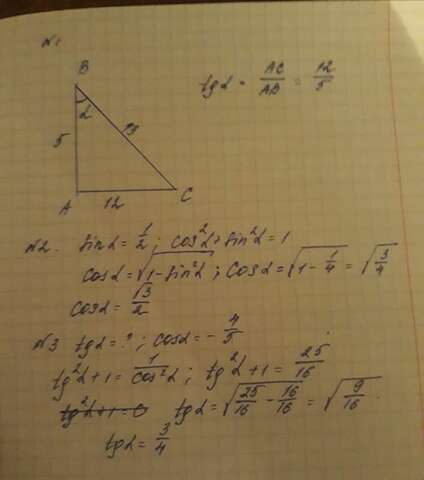 №1
B
tgα = AC/AB = 12/5
α
5
13
A 12 C
№2. sinα = 1/2 ; cos²α + sin²α = 1
cosα = √(1 - sin²α) ; cosα = √(1 - 1/4) = √(3/4)
cosα = √3/2
№3 tgα = ? ; cosα = - 4/5
tg²α + 1 = 1/cos²α ; tg²α + 1 = 25/16
tg²α + 1 = 0 tgα = √(25/16 - 16/16) = √(9/16)
tgα = 3/4